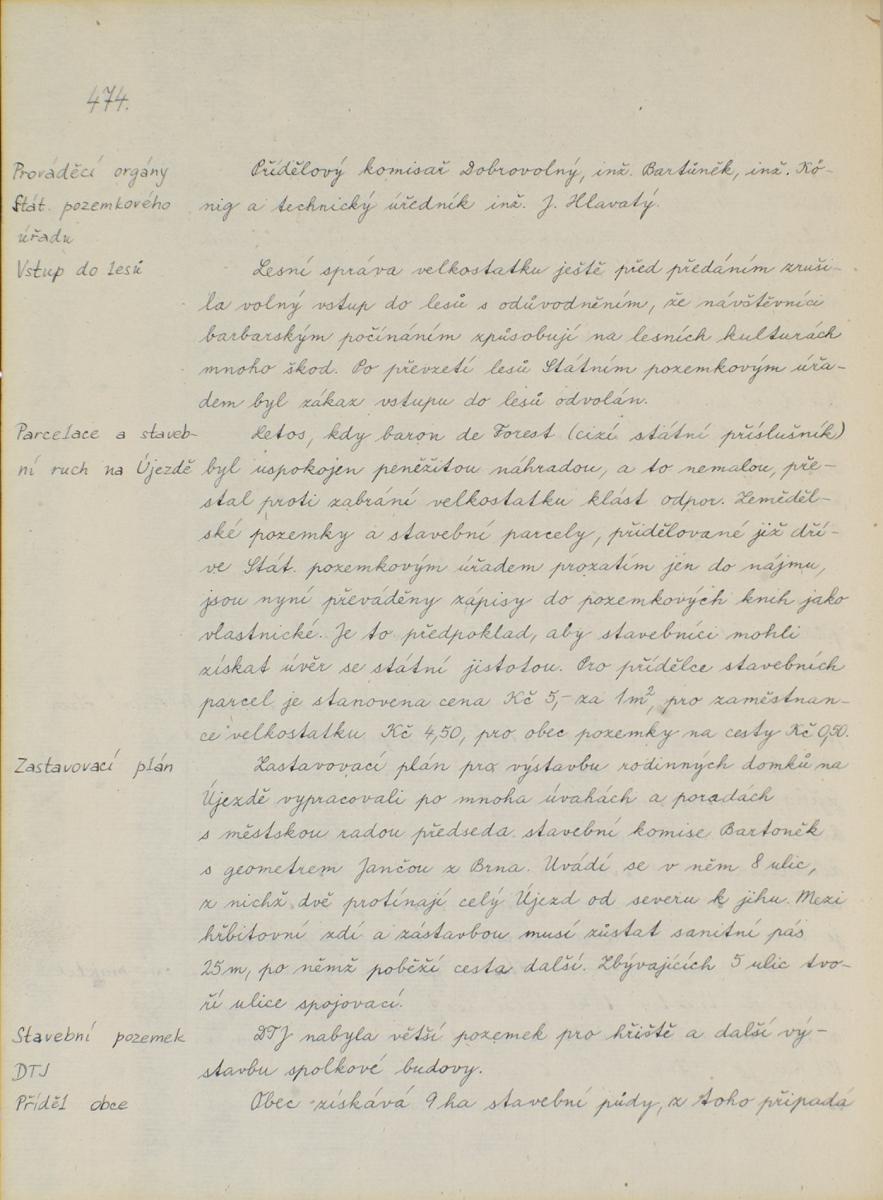 474.
Prováděcí orgány
Stát. pozemkového
úřadu
Přídělový komisař Dobrovolný, inž. Bartůněk, inž. Kö-
nig a technický úředník inž. J. Hlavatý.
Vstup do lesů
Lesní správa velkostatku ještě před předáním zruši-
la volný vstup do lesů s odůvodněním, že návštěvníci
barbarským počínáním způsobují na lesních kulturách
mnoho škod. Po převzetí lesů Státním pozemkovým úřa-
dem byl zákaz vstupu do lesů odvolán.
Parcelace a staveb-
ní ruch na Újezdě
Letos, kdy baron de Forest (cizí státní příslušník)
byl uspokojen peněžitou náhradou, a to nemalou, pře-
stal proti zabrání velkostatku klást odpor. Zeměděl-
ské pozemky a stavební parcely, přidělované již dří-
ve Stát. pozemkovým úřadem prozatím jen do nájmu,
jsou nyní převáděny zápisy do pozemkových knih jako
vlastnické. Je to předpoklad, aby stavebníci mohli
získat úvěr se státní jistotou. Pro přídělce stavebních
parcel je stanovena cena Kč 5,- za 1m², pro zaměstnan-
ce velkostatku Kč 4,50, pro obec pozemky na cesty Kč 0,50.
Zastavovací plán
Zastavovací plán pro výstavbu rodinných domků na
Újezdě vypracovali po mnoha úvahách a poradách
s městskou radou předseda stavební komise Bartoněk
s geometrem Jančou z Brna. Uvádí se v něm 8 ulic,
z nichž dvě protínají celý Újezd od severu k jihu. Mezi
hřbitovní zdí a zástavbou musí zůstat sanitní pás
25 m, po němž poběží cesta další. Zbývajících 5 ulic tvo-
ří ulice spojovací.
Stavební pozemek
DTJ
DTJ nabyla větší pozemek pro hřiště a další vý-
stavbu spolkové budovy.
Příděl obce
Obec získává 9 ha stavební půdy, z toho připadá